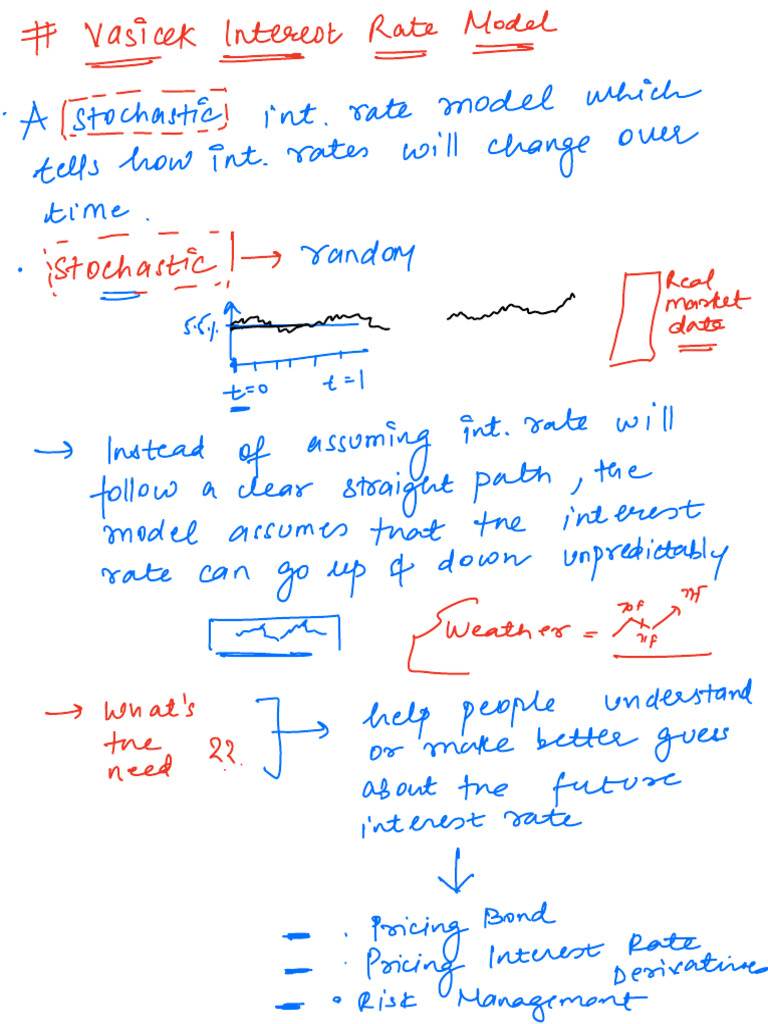 # Vasicek Interest Rate Model
· A stochastic int. rate model which
tells how int. rates will change over
time.
· Stochastic → random
5.5%
t=0 t=1
Real
market
data
→ Instead of assuming int. rate will
follow a clear straight path, the
model assumes that the interest
rate can go up & down unpredictably
Weather =
→ What's
the
need ??
help people understand
or make better guess
about the future
interest rate
· Pricing Bond
· Pricing Interest Rate
Derivatives
· Risk Management